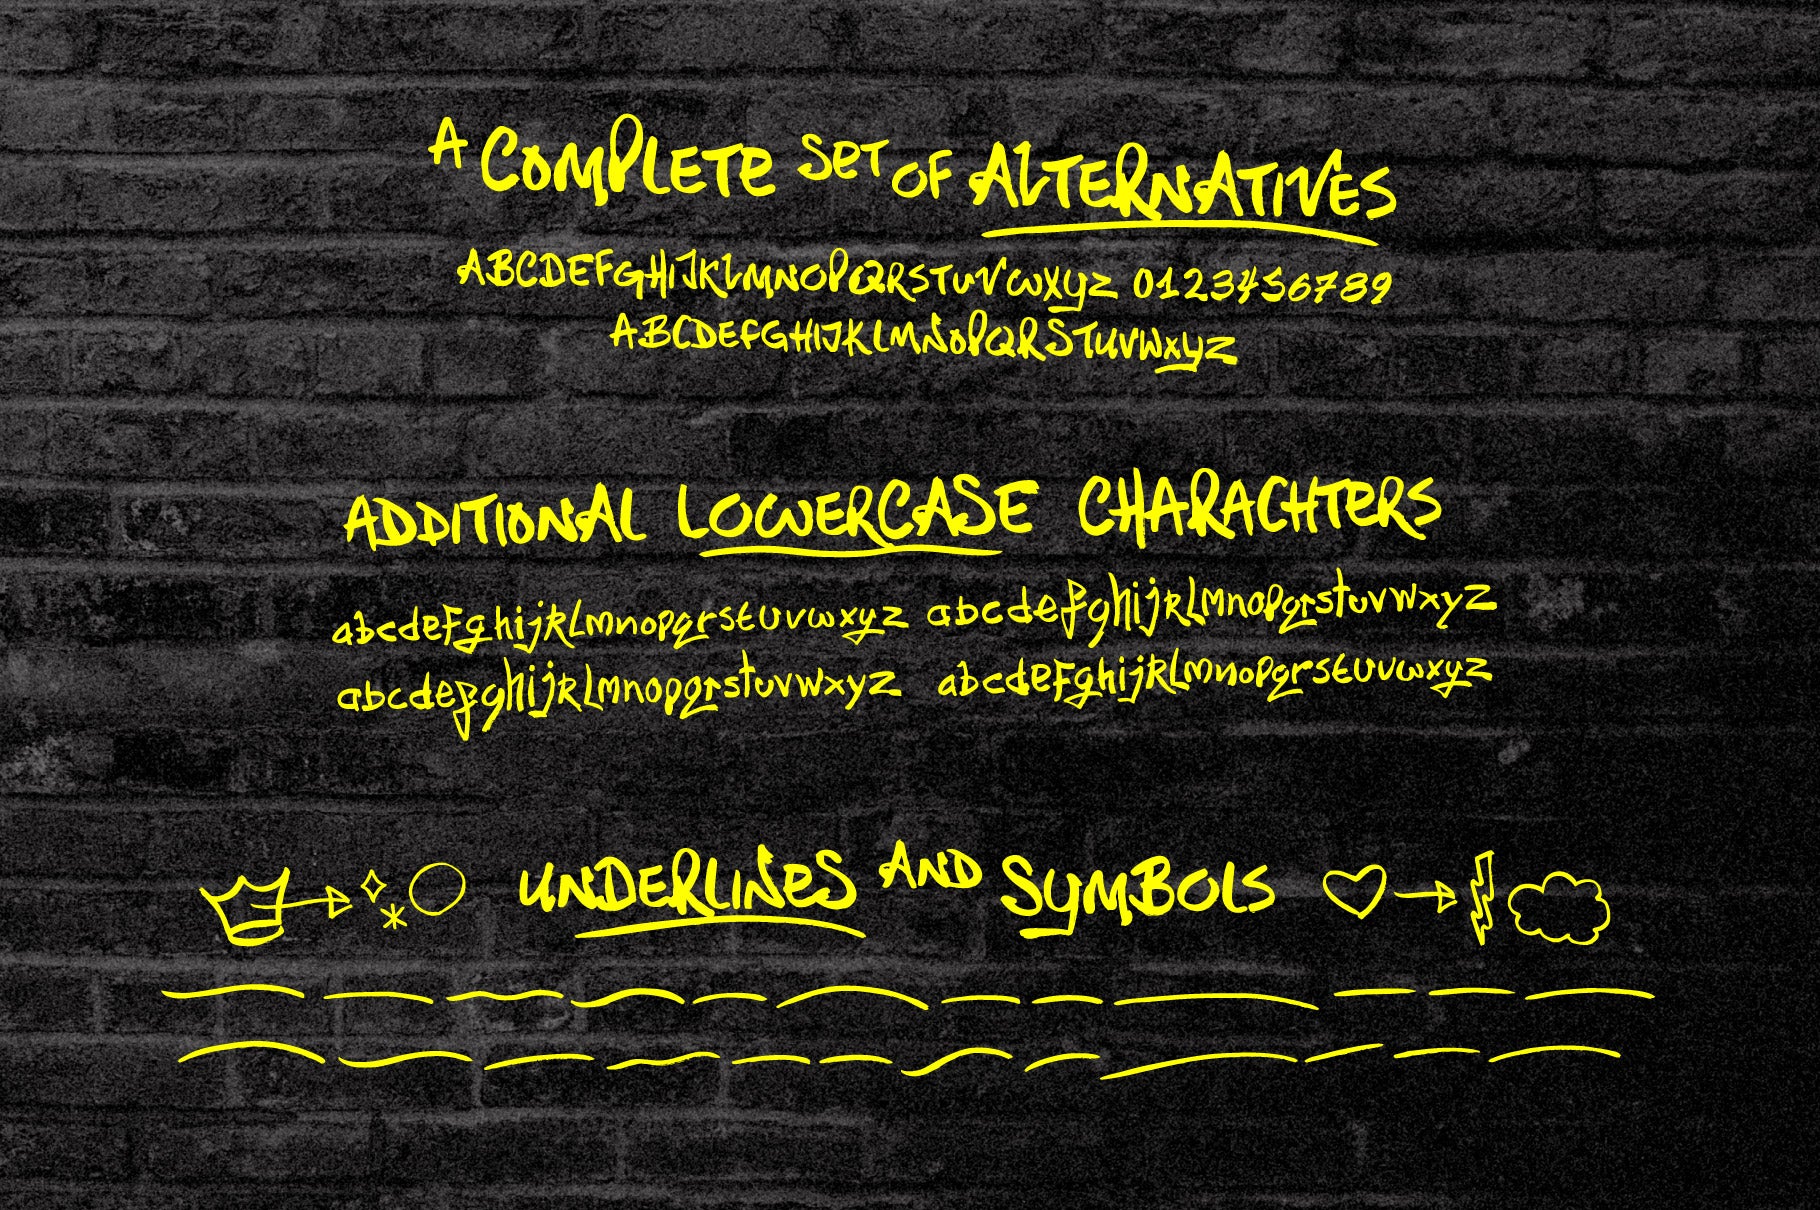 A COMPLETE SET OF ALTERNATIVES
ABCDEFGHIJKLMNOPQRSTUVWXYZ 0123456789
ABCDEFGHIJKLMNOPQRSTUVWXYZ
ADDITIONAL LOWERCASE CHARACHTERS
abcdefghijklmnopqrstuvwxyz abcdefghijklmnopqrstuvwxyz
abcdefghijklmnopqrstuvwxyz abcdefghijklmnopqrstuvwxyz
UNDERLINES AND SYMBOLS